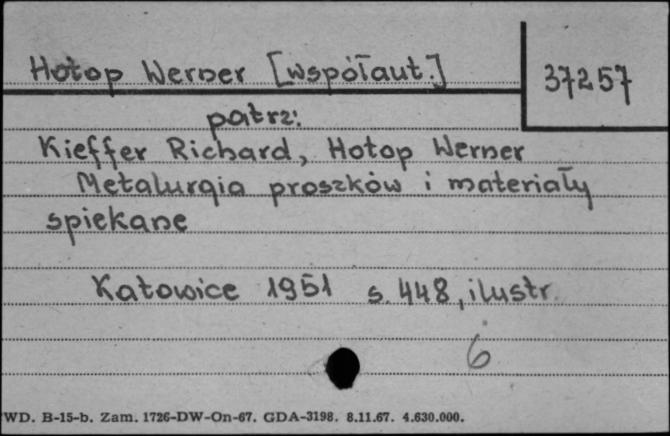 Hotop Werner [współaut.]
37257
patrz:
Kieffer Richard, Hotop Werner
Metalurgia proszków i materiały
spiekane
Katowice 1951 s. 448, ilustr.
6
WD. B-15-b. Zam. 1726-DW-On-67. GDA-3198. 8.11.67. 4.630.000.